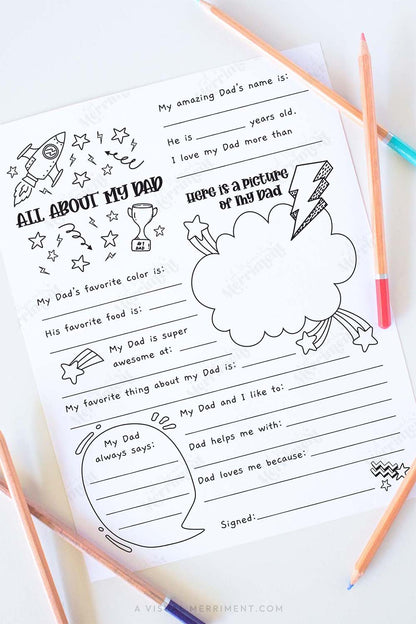 My amazing Dad's name is:
He is ________ years old.
I love my Dad more than
ALL ABOUT MY DAD
#1
DAD
Here is a picture
of my Dad
My Dad's favorite color is:
His favorite food is:
My Dad is super
awesome at:
My favorite thing about my Dad is:
My Dad and I like to:
My Dad
always says:
Dad helps me with:
Dad loves me because:
Signed: